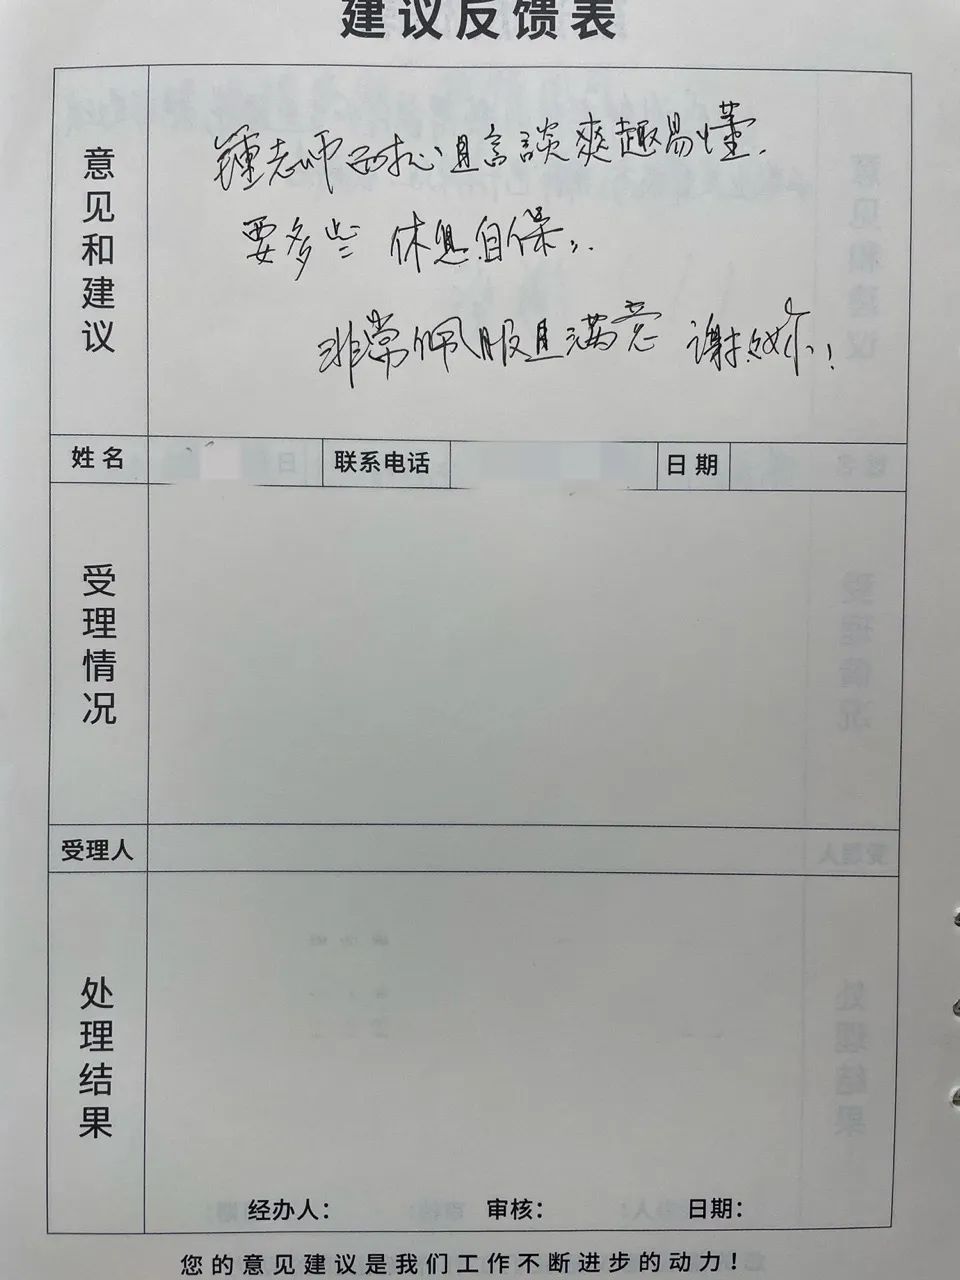 建议反馈表
意见和建议
鍾老师耐心且言談爽趣易懂.
要多些 休息自保.
非常佩服且满意 谢谢妳!
姓名
联系电话
日期
受理情况
受理人
处理结果
经办人: 审核: 日期:
您的意见建议是我们工作不断进步的动力!